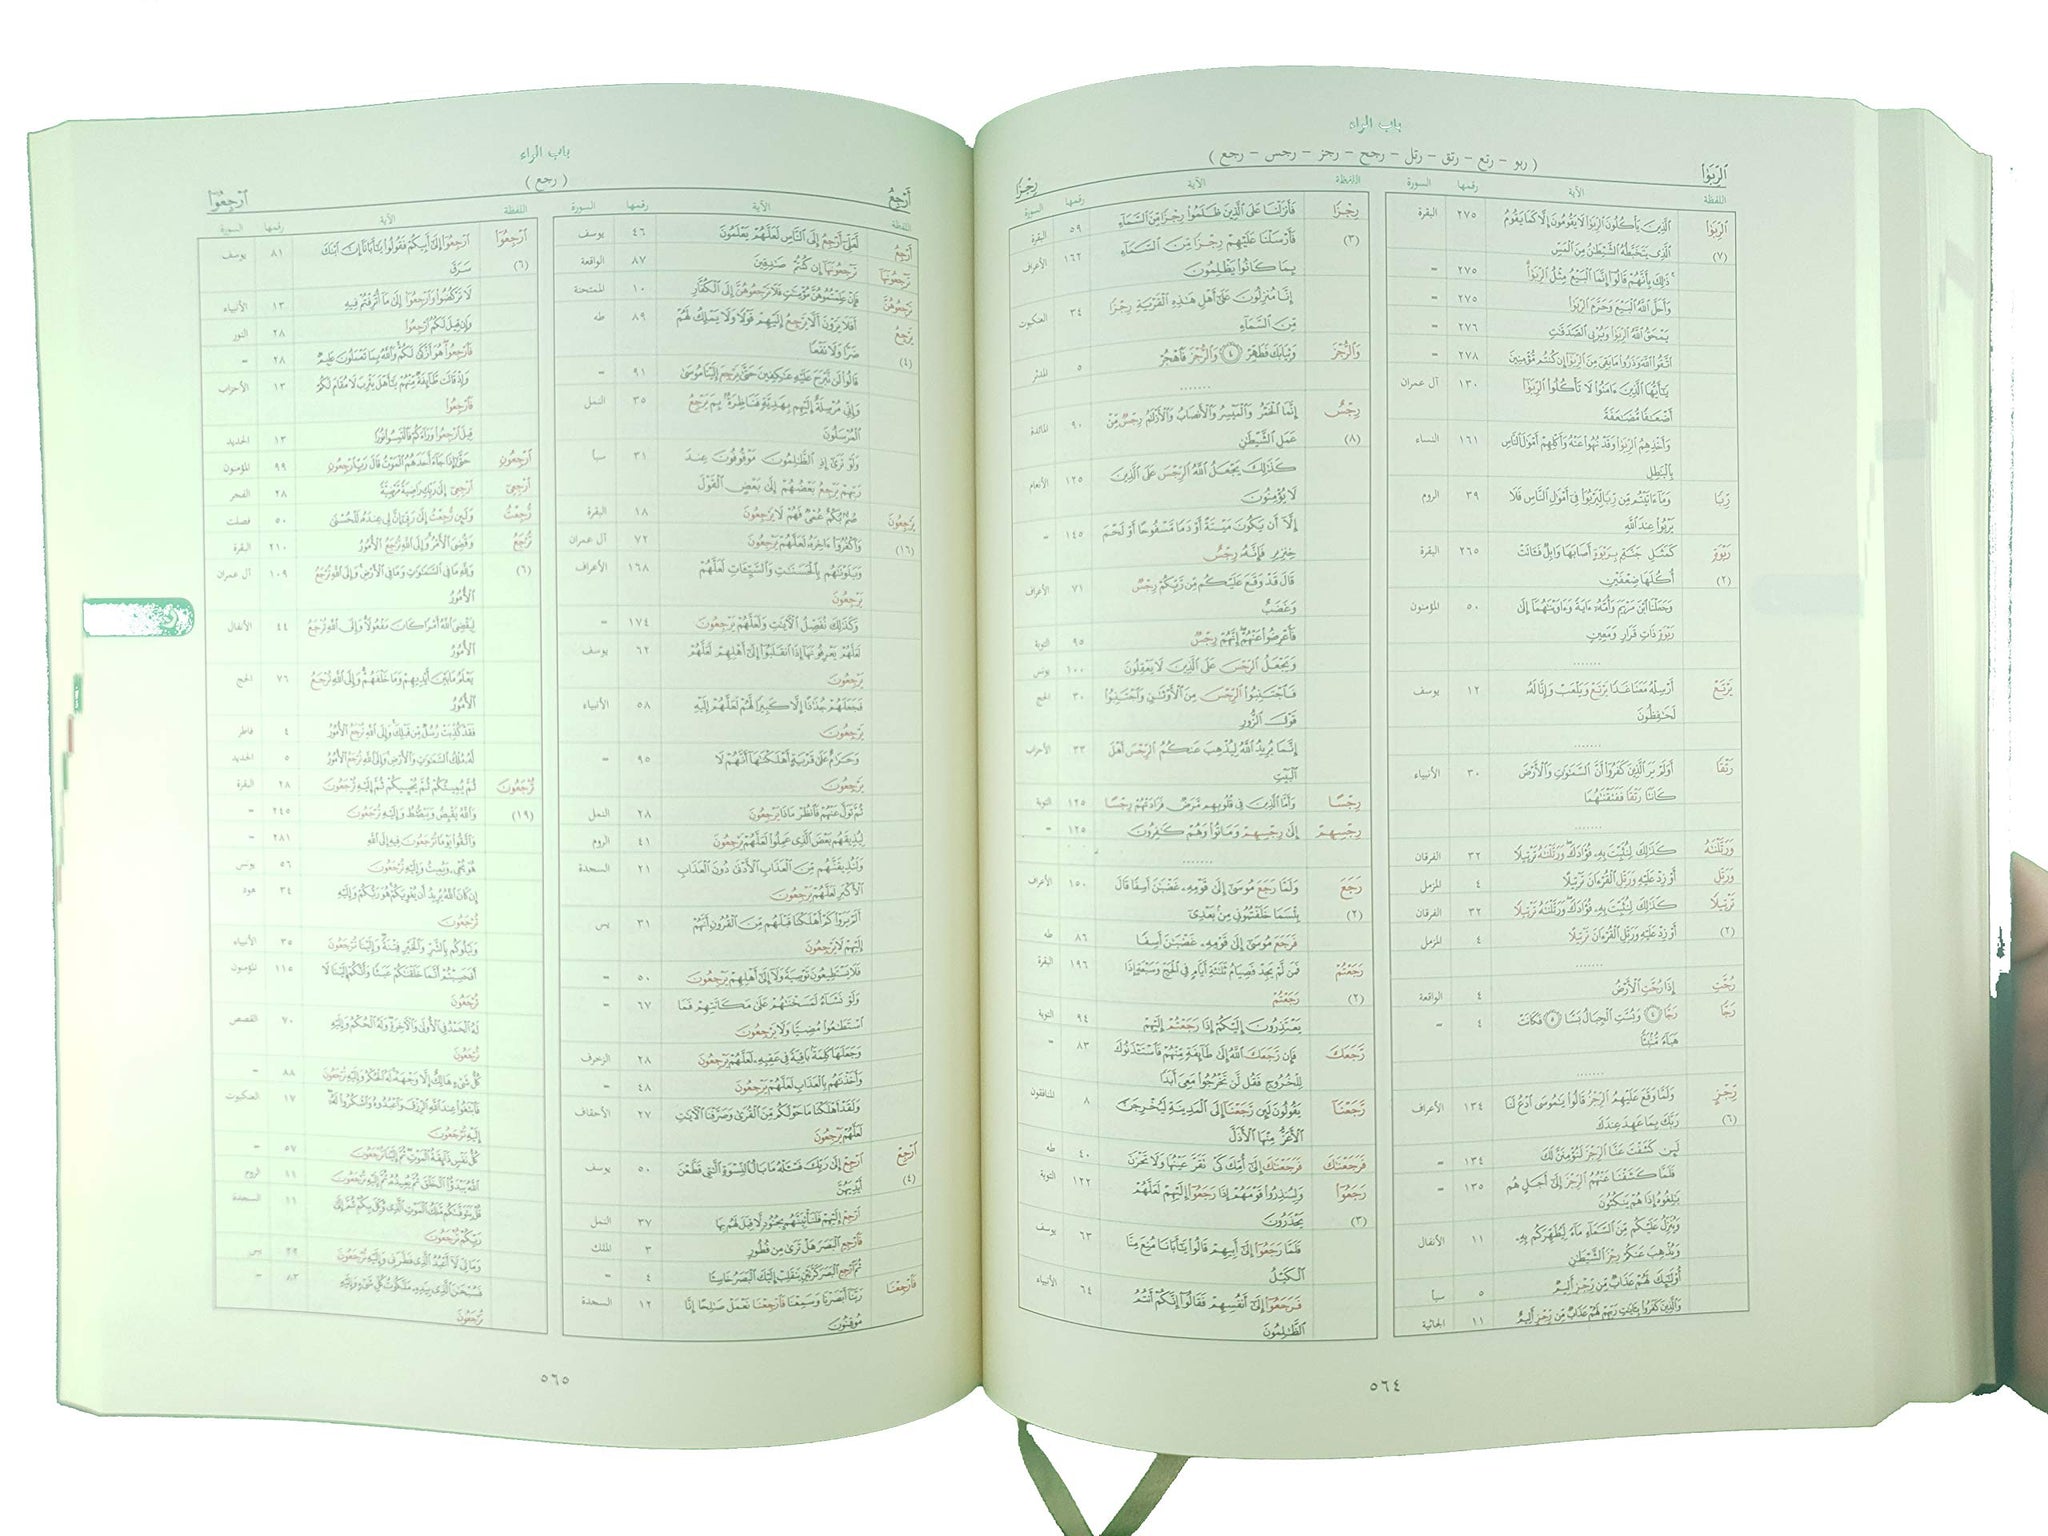 باب الراء
( ربو – رتع – رتق – رتل – رجح – رجز – رجس – رجع )
ٱلرِّبَوٰا۟
رِجْزًا
اللفظة الآية رقمها السورة
ٱلرِّبَوٰا۟ ٱلَّذِينَ يَأْكُلُونَ ٱلرِّبَوٰا۟ لَا يَقُومُونَ إِلَّا كَمَا يَقُومُ ٢٧٥ البقرة
(٧) ٱلَّذِى يَتَخَبَّطُهُ ٱلشَّيْطَٰنُ مِنَ ٱلْمَسِّ
ذَٰلِكَ بِأَنَّهُمْ قَالُوٓا۟ إِنَّمَا ٱلْبَيْعُ مِثْلُ ٱلرِّبَوٰا۟ ٢٧٥ =
وَأَحَلَّ ٱللَّهُ ٱلْبَيْعَ وَحَرَّمَ ٱلرِّبَوٰا۟ ٢٧٥ =
يَمْحَقُ ٱللَّهُ ٱلرِّبَوٰا۟ وَيُرْبِى ٱلصَّدَقَٰتِ ٢٧٦ =
ٱتَّقُوا۟ ٱللَّهَ وَذَرُوا۟ مَا بَقِىَ مِنَ ٱلرِّبَوٰٓا۟ إِن كُنتُم مُّؤْمِنِينَ ٢٧٨ =
يَٰٓأَيُّهَا ٱلَّذِينَ ءَامَنُوا۟ لَا تَأْكُلُوا۟ ٱلرِّبَوٰٓا۟ ١٣٠ آل عمران
أَضْعَٰفًا مُّضَٰعَفَةً
وَأَخْذِهِمُ ٱلرِّبَوٰا۟ وَقَدْ نُهُوا۟ عَنْهُ وَأَكْلِهِمْ أَمْوَٰلَ ٱلنَّاسِ ١٦١ النساء
بِٱلْبَٰطِلِ
رِّبًا وَمَآ ءَاتَيْتُم مِّن رِّبًا لِّيَرْبُوَا۟ فِىٓ أَمْوَٰلِ ٱلنَّاسِ فَلَا ٣٩ الروم
يَرْبُوا۟ عِندَ ٱللَّهِ
رَبْوَةٍ كَمَثَلِ جَنَّةٍۭ بِرَبْوَةٍ أَصَابَهَا وَابِلٌ فَـَٔاتَتْ ٢٦٥ البقرة
(٢) أُكُلَهَا ضِعْفَيْنِ
وَجَعَلْنَا ٱبْنَ مَرْيَمَ وَأُمَّهُۥٓ ءَايَةً وَءَاوَيْنَٰهُمَآ إِلَىٰ ٥٠ المؤمنون
رَبْوَةٍ ذَاتِ قَرَارٍ وَمَعِينٍ
.......
يَرْتَعْ أَرْسِلْهُ مَعَنَا غَدًا يَرْتَعْ وَيَلْعَبْ وَإِنَّا لَهُۥ ١٢ يوسف
لَحَٰفِظُونَ
.......
رَتْقًا أَوَلَمْ يَرَ ٱلَّذِينَ كَفَرُوٓا۟ أَنَّ ٱلسَّمَٰوَٰتِ وَٱلْأَرْضَ ٣٠ الأنبياء
كَانَتَا رَتْقًا فَفَتَقْنَٰهُمَا
.......
وَرَتَّلْنَٰهُ كَذَٰلِكَ لِنُثَبِّتَ بِهِۦ فُؤَادَكَ وَرَتَّلْنَٰهُ تَرْتِيلًا ٣٢ الفرقان
وَرَتِّلِ أَوْ زِدْ عَلَيْهِ وَرَتِّلِ ٱلْقُرْءَانَ تَرْتِيلًا ٤ المزمل
تَرْتِيلًا كَذَٰلِكَ لِنُثَبِّتَ بِهِۦ فُؤَادَكَ وَرَتَّلْنَٰهُ تَرْتِيلًا ٣٢ الفرقان
(٢) أَوْ زِدْ عَلَيْهِ وَرَتِّلِ ٱلْقُرْءَانَ تَرْتِيلًا ٤ المزمل
.......
رُجَّتِ إِذَا رُجَّتِ ٱلْأَرْضُ ٤ الواقعة
رَجًّا رَجًّا ٤ وَبُسَّتِ ٱلْجِبَالُ بَسًّا ٥ فَكَانَتْ ٤ =
هَبَآءً مُّنۢبَثًّا
.......
رِّجْزٍ وَلَمَّا وَقَعَ عَلَيْهِمُ ٱلرِّجْزُ قَالُوا۟ يَٰمُوسَى ٱدْعُ لَنَا ١٣٤ الأعراف
(٦) رَبَّكَ بِمَا عَهِدَ عِندَكَ
لَئِن كَشَفْتَ عَنَّا ٱلرِّجْزَ لَنُؤْمِنَنَّ لَكَ ١٣٤ =
فَلَمَّا كَشَفْنَا عَنْهُمُ ٱلرِّجْزَ إِلَىٰٓ أَجَلٍ هُم ١٣٥ =
بَٰلِغُوهُ إِذَا هُمْ يَنكُثُونَ
وَيُنَزِّلُ عَلَيْكُم مِّنَ ٱلسَّمَآءِ مَآءً لِّيُطَهِّرَكُم بِهِۦ ١١ الأنفال
وَيُذْهِبَ عَنكُمْ رِجْزَ ٱلشَّيْطَٰنِ
أُو۟لَٰٓئِكَ لَهُمْ عَذَابٌ مِّن رِّجْزٍ أَلِيمٌ ٥ سبأ
وَٱلَّذِينَ كَفَرُوا۟ بِـَٔايَٰتِ رَبِّهِمْ لَهُمْ عَذَابٌ مِّن رِّجْزٍ أَلِيمٌ ١١ الجاثية
اللفظة الآية رقمها السورة
رِجْزًا فَأَنزَلْنَا عَلَى ٱلَّذِينَ ظَلَمُوا۟ رِجْزًا مِّنَ ٱلسَّمَآءِ ٥٩ البقرة
(٣) فَأَرْسَلْنَا عَلَيْهِمْ رِجْزًا مِّنَ ٱلسَّمَآءِ ١٦٢ الأعراف
بِمَا كَانُوا۟ يَظْلِمُونَ
إِنَّا مُنزِلُونَ عَلَىٰٓ أَهْلِ هَٰذِهِ ٱلْقَرْيَةِ رِجْزًا ٣٤ العنكبوت
مِّنَ ٱلسَّمَآءِ
وَٱلرُّجْزَ وَثِيَابَكَ فَطَهِّرْ ٤ وَٱلرُّجْزَ فَٱهْجُرْ ٥ المدثر
.......
رِجْسٌ إِنَّمَا ٱلْخَمْرُ وَٱلْمَيْسِرُ وَٱلْأَنصَابُ وَٱلْأَزْلَٰمُ رِجْسٌ مِّنْ ٩٠ المائدة
(٨) عَمَلِ ٱلشَّيْطَٰنِ
كَذَٰلِكَ يَجْعَلُ ٱللَّهُ ٱلرِّجْسَ عَلَى ٱلَّذِينَ ١٢٥ الأنعام
لَا يُؤْمِنُونَ
إِلَّآ أَن يَكُونَ مَيْتَةً أَوْ دَمًا مَّسْفُوحًا أَوْ لَحْمَ ١٤٥ =
خِنزِيرٍ فَإِنَّهُۥ رِجْسٌ
قَالَ قَدْ وَقَعَ عَلَيْكُم مِّن رَّبِّكُمْ رِجْسٌ ٧١ الأعراف
وَغَضَبٌ
فَأَعْرِضُوا۟ عَنْهُمْ إِنَّهُمْ رِجْسٌ ٩٥ التوبة
وَيَجْعَلُ ٱلرِّجْسَ عَلَى ٱلَّذِينَ لَا يَعْقِلُونَ ١٠٠ يونس
فَٱجْتَنِبُوا۟ ٱلرِّجْسَ مِنَ ٱلْأَوْثَٰنِ وَٱجْتَنِبُوا۟ ٣٠ الحج
قَوْلَ ٱلزُّورِ
إِنَّمَا يُرِيدُ ٱللَّهُ لِيُذْهِبَ عَنكُمُ ٱلرِّجْسَ أَهْلَ ٣٣ الأحزاب
ٱلْبَيْتِ
رِجْسًا وَأَمَّا ٱلَّذِينَ فِى قُلُوبِهِم مَّرَضٌ فَزَادَتْهُمْ رِجْسًا ١٢٥ التوبة
رِجْسِهِمْ إِلَىٰ رِجْسِهِمْ وَمَاتُوا۟ وَهُمْ كَٰفِرُونَ ١٢٥ =
.......
رَجَعَ وَلَمَّا رَجَعَ مُوسَىٰٓ إِلَىٰ قَوْمِهِۦ غَضْبَٰنَ أَسِفًا قَالَ ١٥٠ الأعراف
(٢) بِئْسَمَا خَلَفْتُمُونِى مِنۢ بَعْدِىٓ
فَرَجَعَ مُوسَىٰٓ إِلَىٰ قَوْمِهِۦ غَضْبَٰنَ أَسِفًا ٨٦ طه
رَجَعْتُمْ فَمَن لَّمْ يَجِدْ فَصِيَامُ ثَلَٰثَةِ أَيَّامٍ فِى ٱلْحَجِّ وَسَبْعَةٍ إِذَا ١٩٦ البقرة
(٢) رَجَعْتُمْ
يَعْتَذِرُونَ إِلَيْكُمْ إِذَا رَجَعْتُمْ إِلَيْهِمْ ٩٤ التوبة
رَّجَعَكَ فَإِن رَّجَعَكَ ٱللَّهُ إِلَىٰ طَآئِفَةٍ مِّنْهُمْ فَٱسْتَـْٔذَنُوكَ ٨٣ =
لِلْخُرُوجِ فَقُل لَّن تَخْرُجُوا۟ مَعِىَ أَبَدًا
رَّجَعْنَآ يَقُولُونَ لَئِن رَّجَعْنَآ إِلَى ٱلْمَدِينَةِ لَيُخْرِجَنَّ ٨ المنافقون
ٱلْأَعَزُّ مِنْهَا ٱلْأَذَلَّ
فَرَجَعْنَٰكَ فَرَجَعْنَٰكَ إِلَىٰٓ أُمِّكَ كَىْ تَقَرَّ عَيْنُهَا وَلَا تَحْزَنَ ٤٠ طه
رَجَعُوٓا۟ وَلِيُنذِرُوا۟ قَوْمَهُمْ إِذَا رَجَعُوٓا۟ إِلَيْهِمْ لَعَلَّهُمْ ١٢٢ التوبة
(٣) يَحْذَرُونَ
فَلَمَّا رَجَعُوٓا۟ إِلَىٰٓ أَبِيهِمْ قَالُوا۟ يَٰٓأَبَانَا مُنِعَ مِنَّا ٦٣ يوسف
ٱلْكَيْلُ
فَرَجَعُوٓا۟ إِلَىٰٓ أَنفُسِهِمْ فَقَالُوٓا۟ إِنَّكُمْ أَنتُمُ ٦٤ الأنبياء
ٱلظَّٰلِمُونَ
٥٦٤
باب الراء
( رجع )
أَرْجِعُ
ٱرْجِعُوٓا۟
اللفظة الآية رقمها السورة
أَرْجِعُ لَّعَلِّىٓ أَرْجِعُ إِلَى ٱلنَّاسِ لَعَلَّهُمْ يَعْلَمُونَ ٤٦ يوسف
تَرْجِعُونَهَآ تَرْجِعُونَهَآ إِن كُنتُمْ صَٰدِقِينَ ٨٧ الواقعة
تَرْجِعُوهُنَّ فَإِنْ عَلِمْتُمُوهُنَّ مُؤْمِنَٰتٍ فَلَا تَرْجِعُوهُنَّ إِلَى ٱلْكُفَّارِ ١٠ الممتحنة
يَرْجِعُ أَفَلَا يَرَوْنَ أَلَّا يَرْجِعُ إِلَيْهِمْ قَوْلًا وَلَا يَمْلِكُ لَهُمْ ٨٩ طه
(٤) ضَرًّا وَلَا نَفْعًا
قَالُوا۟ لَن نَّبْرَحَ عَلَيْهِ عَٰكِفِينَ حَتَّىٰ يَرْجِعَ إِلَيْنَا مُوسَىٰ ٩١ =
وَإِنِّى مُرْسِلَةٌ إِلَيْهِم بِهَدِيَّةٍ فَنَاظِرَةٌۢ بِمَ يَرْجِعُ ٣٥ النمل
ٱلْمُرْسَلُونَ
وَلَوْ تَرَىٰٓ إِذِ ٱلظَّٰلِمُونَ مَوْقُوفُونَ عِندَ ٣١ سبأ
رَبِّهِمْ يَرْجِعُ بَعْضُهُمْ إِلَىٰ بَعْضٍ ٱلْقَوْلَ
يَرْجِعُونَ صُمٌّۢ بُكْمٌ عُمْىٌ فَهُمْ لَا يَرْجِعُونَ ١٨ البقرة
(١٦) وَٱكْفُرُوٓا۟ ءَاخِرَهُۥ لَعَلَّهُمْ يَرْجِعُونَ ٧٢ آل عمران
وَبَلَوْنَٰهُم بِٱلْحَسَنَٰتِ وَٱلسَّيِّـَٔاتِ لَعَلَّهُمْ ١٦٨ الأعراف
يَرْجِعُونَ
وَكَذَٰلِكَ نُفَصِّلُ ٱلْءَايَٰتِ وَلَعَلَّهُمْ يَرْجِعُونَ ١٧٤ =
لَعَلَّهُمْ يَعْرِفُونَهَآ إِذَا ٱنقَلَبُوٓا۟ إِلَىٰٓ أَهْلِهِمْ لَعَلَّهُمْ ٦٢ يوسف
يَرْجِعُونَ
فَجَعَلَهُمْ جُذَٰذًا إِلَّا كَبِيرًا لَّهُمْ لَعَلَّهُمْ إِلَيْهِ ٥٨ الأنبياء
يَرْجِعُونَ
وَحَرَٰمٌ عَلَىٰ قَرْيَةٍ أَهْلَكْنَٰهَآ أَنَّهُمْ لَا ٩٥ =
يَرْجِعُونَ
ثُمَّ تَوَلَّ عَنْهُمْ فَٱنظُرْ مَاذَا يَرْجِعُونَ ٢٨ النمل
لِيُذِيقَهُم بَعْضَ ٱلَّذِى عَمِلُوا۟ لَعَلَّهُمْ يَرْجِعُونَ ٤١ الروم
وَلَنُذِيقَنَّهُم مِّنَ ٱلْعَذَابِ ٱلْأَدْنَىٰ دُونَ ٱلْعَذَابِ ٢١ السجدة
ٱلْأَكْبَرِ لَعَلَّهُمْ يَرْجِعُونَ
أَلَمْ يَرَوْا۟ كَمْ أَهْلَكْنَا قَبْلَهُم مِّنَ ٱلْقُرُونِ أَنَّهُمْ ٣١ يس
إِلَيْهِمْ لَا يَرْجِعُونَ
فَلَا يَسْتَطِيعُونَ تَوْصِيَةً وَلَآ إِلَىٰٓ أَهْلِهِمْ يَرْجِعُونَ ٥٠ =
وَلَوْ نَشَآءُ لَمَسَخْنَٰهُمْ عَلَىٰ مَكَانَتِهِمْ فَمَا ٦٧ =
ٱسْتَطَٰعُوا۟ مُضِيًّا وَلَا يَرْجِعُونَ
وَجَعَلَهَا كَلِمَةًۢ بَاقِيَةً فِى عَقِبِهِۦ لَعَلَّهُمْ يَرْجِعُونَ ٢٨ الزخرف
وَأَخَذْنَٰهُم بِٱلْعَذَابِ لَعَلَّهُمْ يَرْجِعُونَ ٤٨ =
وَلَقَدْ أَهْلَكْنَا مَا حَوْلَكُم مِّنَ ٱلْقُرَىٰ وَصَرَّفْنَا ٱلْءَايَٰتِ ٢٧ الأحقاف
لَعَلَّهُمْ يَرْجِعُونَ
ٱرْجِعْ ٱرْجِعْ إِلَىٰ رَبِّكَ فَسْـَٔلْهُ مَا بَالُ ٱلنِّسْوَةِ ٱلَّٰتِى قَطَّعْنَ ٥٠ يوسف
(٤) أَيْدِيَهُنَّ
ٱرْجِعْ إِلَيْهِمْ فَلَنَأْتِيَنَّهُم بِجُنُودٍ لَّا قِبَلَ لَهُم بِهَا ٣٧ النمل
فَٱرْجِعِ ٱلْبَصَرَ هَلْ تَرَىٰ مِن فُطُورٍ ٣ الملك
ثُمَّ ٱرْجِعِ ٱلْبَصَرَ كَرَّتَيْنِ يَنقَلِبْ إِلَيْكَ ٱلْبَصَرُ خَاسِئًا ٤ =
فَٱرْجِعْنَا رَبَّنَآ أَبْصَرْنَا وَسَمِعْنَا فَٱرْجِعْنَا نَعْمَلْ صَٰلِحًا إِنَّا ١٢ السجدة
مُوقِنُونَ
اللفظة الآية رقمها السورة
ٱرْجِعُوٓا۟ ٱرْجِعُوٓا۟ إِلَىٰٓ أَبِيكُمْ فَقُولُوا۟ يَٰٓأَبَانَآ إِنَّ ٱبْنَكَ ٨١ يوسف
(٦) سَرَقَ
لَا تَرْكُضُوا۟ وَٱرْجِعُوٓا۟ إِلَىٰ مَآ أُتْرِفْتُمْ فِيهِ ١٣ الأنبياء
وَإِن قِيلَ لَكُمُ ٱرْجِعُوا۟ ٢٨ النور
فَٱرْجِعُوا۟ هُوَ أَزْكَىٰ لَكُمْ وَٱللَّهُ بِمَا تَعْمَلُونَ عَلِيمٌ ٢٨ =
وَإِذْ قَالَت طَّآئِفَةٌ مِّنْهُمْ يَٰٓأَهْلَ يَثْرِبَ لَا مُقَامَ لَكُمْ ١٣ الأحزاب
فَٱرْجِعُوا۟
قِيلَ ٱرْجِعُوا۟ وَرَآءَكُمْ فَٱلْتَمِسُوا۟ نُورًا ١٣ الحديد
ٱرْجِعُونِ حَتَّىٰٓ إِذَا جَآءَ أَحَدَهُمُ ٱلْمَوْتُ قَالَ رَبِّ ٱرْجِعُونِ ٩٩ المؤمنون
ٱرْجِعِىٓ ٱرْجِعِىٓ إِلَىٰ رَبِّكِ رَاضِيَةً مَّرْضِيَّةً ٢٨ الفجر
رُّجِعْتُ وَلَئِن رُّجِعْتُ إِلَىٰ رَبِّىٓ إِنَّ لِى عِندَهُۥ لَلْحُسْنَىٰ ٥٠ فصلت
تُرْجَعُ وَقُضِىَ ٱلْأَمْرُ وَإِلَى ٱللَّهِ تُرْجَعُ ٱلْأُمُورُ ٢١٠ البقرة
(٦) وَلِلَّهِ مَا فِى ٱلسَّمَٰوَٰتِ وَمَا فِى ٱلْأَرْضِ وَإِلَى ٱللَّهِ تُرْجَعُ ١٠٩ آل عمران
ٱلْأُمُورُ
لِيَقْضِىَ ٱللَّهُ أَمْرًا كَانَ مَفْعُولًا وَإِلَى ٱللَّهِ تُرْجَعُ ٤٤ الأنفال
ٱلْأُمُورُ
يَعْلَمُ مَا بَيْنَ أَيْدِيهِمْ وَمَا خَلْفَهُمْ وَإِلَى ٱللَّهِ تُرْجَعُ ٧٦ الحج
ٱلْأُمُورُ
فَقَدْ كُذِّبَتْ رُسُلٌ مِّن قَبْلِكَ وَإِلَى ٱللَّهِ تُرْجَعُ ٱلْأُمُورُ ٤ فاطر
لَّهُۥ مُلْكُ ٱلسَّمَٰوَٰتِ وَٱلْأَرْضِ وَإِلَى ٱللَّهِ تُرْجَعُ ٱلْأُمُورُ ٥ الحديد
تُرْجَعُونَ ثُمَّ يُمِيتُكُمْ ثُمَّ يُحْيِيكُمْ ثُمَّ إِلَيْهِ تُرْجَعُونَ ٢٨ البقرة
(١٩) وَٱللَّهُ يَقْبِضُ وَيَبْصُۜطُ وَإِلَيْهِ تُرْجَعُونَ ٢٤٥ =
وَٱتَّقُوا۟ يَوْمًا تُرْجَعُونَ فِيهِ إِلَى ٱللَّهِ ٢٨١ =
هُوَ يُحْىِۦ وَيُمِيتُ وَإِلَيْهِ تُرْجَعُونَ ٥٦ يونس
إِن كَانَ ٱللَّهُ يُرِيدُ أَن يُغْوِيَكُمْ هُوَ رَبُّكُمْ وَإِلَيْهِ ٣٤ هود
تُرْجَعُونَ
وَنَبْلُوكُم بِٱلشَّرِّ وَٱلْخَيْرِ فِتْنَةً وَإِلَيْنَا تُرْجَعُونَ ٣٥ الأنبياء
أَفَحَسِبْتُمْ أَنَّمَا خَلَقْنَٰكُمْ عَبَثًا وَأَنَّكُمْ إِلَيْنَا لَا ١١٥ المؤمنون
تُرْجَعُونَ
لَهُ ٱلْحَمْدُ فِى ٱلْأُولَىٰ وَٱلْءَاخِرَةِ وَلَهُ ٱلْحُكْمُ وَإِلَيْهِ ٧٠ القصص
تُرْجَعُونَ
كُلُّ شَىْءٍ هَالِكٌ إِلَّا وَجْهَهُۥ لَهُ ٱلْحُكْمُ وَإِلَيْهِ تُرْجَعُونَ ٨٨ =
فَٱبْتَغُوا۟ عِندَ ٱللَّهِ ٱلرِّزْقَ وَٱعْبُدُوهُ وَٱشْكُرُوا۟ لَهُۥٓ ١٧ العنكبوت
إِلَيْهِ تُرْجَعُونَ
كُلُّ نَفْسٍ ذَآئِقَةُ ٱلْمَوْتِ ثُمَّ إِلَيْنَا تُرْجَعُونَ ٥٧ =
ٱللَّهُ يَبْدَؤُا۟ ٱلْخَلْقَ ثُمَّ يُعِيدُهُۥ ثُمَّ إِلَيْهِ تُرْجَعُونَ ١١ الروم
قُلْ يَتَوَفَّىٰكُم مَّلَكُ ٱلْمَوْتِ ٱلَّذِى وُكِّلَ بِكُمْ ثُمَّ إِلَىٰ ١١ السجدة
رَبِّكُمْ تُرْجَعُونَ
وَمَا لِىَ لَآ أَعْبُدُ ٱلَّذِى فَطَرَنِى وَإِلَيْهِ تُرْجَعُونَ ٢٢ يس
فَسُبْحَٰنَ ٱلَّذِى بِيَدِهِۦ مَلَكُوتُ كُلِّ شَىْءٍ وَإِلَيْهِ ٨٣ =
تُرْجَعُونَ
٥٦٥